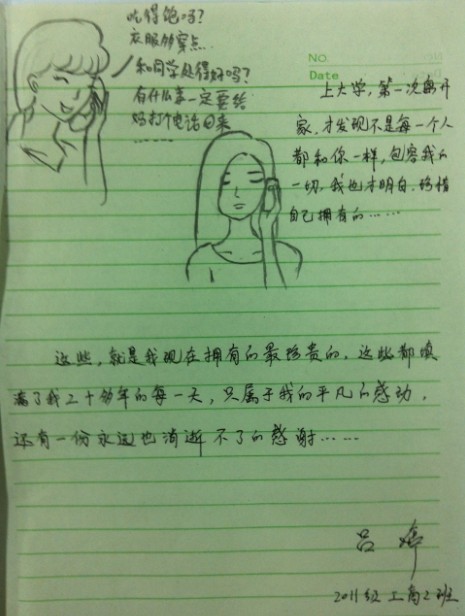 吃得饱吗?
衣服多穿点.
和同学处得好吗?
有什么事一定要给
妈打个电话回来
……
NO.
Date
上大学,第一次离开
家,才发现不是每一个人
都和你一样,包容我的
一切.我也才明白,珍惜
自己拥有的……
这些,就是我现在拥有的最珍贵的,这些都填
满了我二十多年的每一天,只属于我的平凡的感动,
还有一份永远也消逝不了的感谢……
吕婷
2011级 工商2班